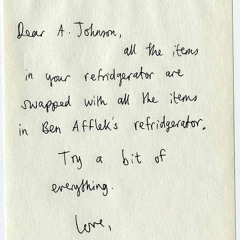 Dear A. Johnson,
all the items
in your refridgerator are
swapped with all the items
in Ben Afflek's refridgerator.
Try a bit of
everything.
Love,